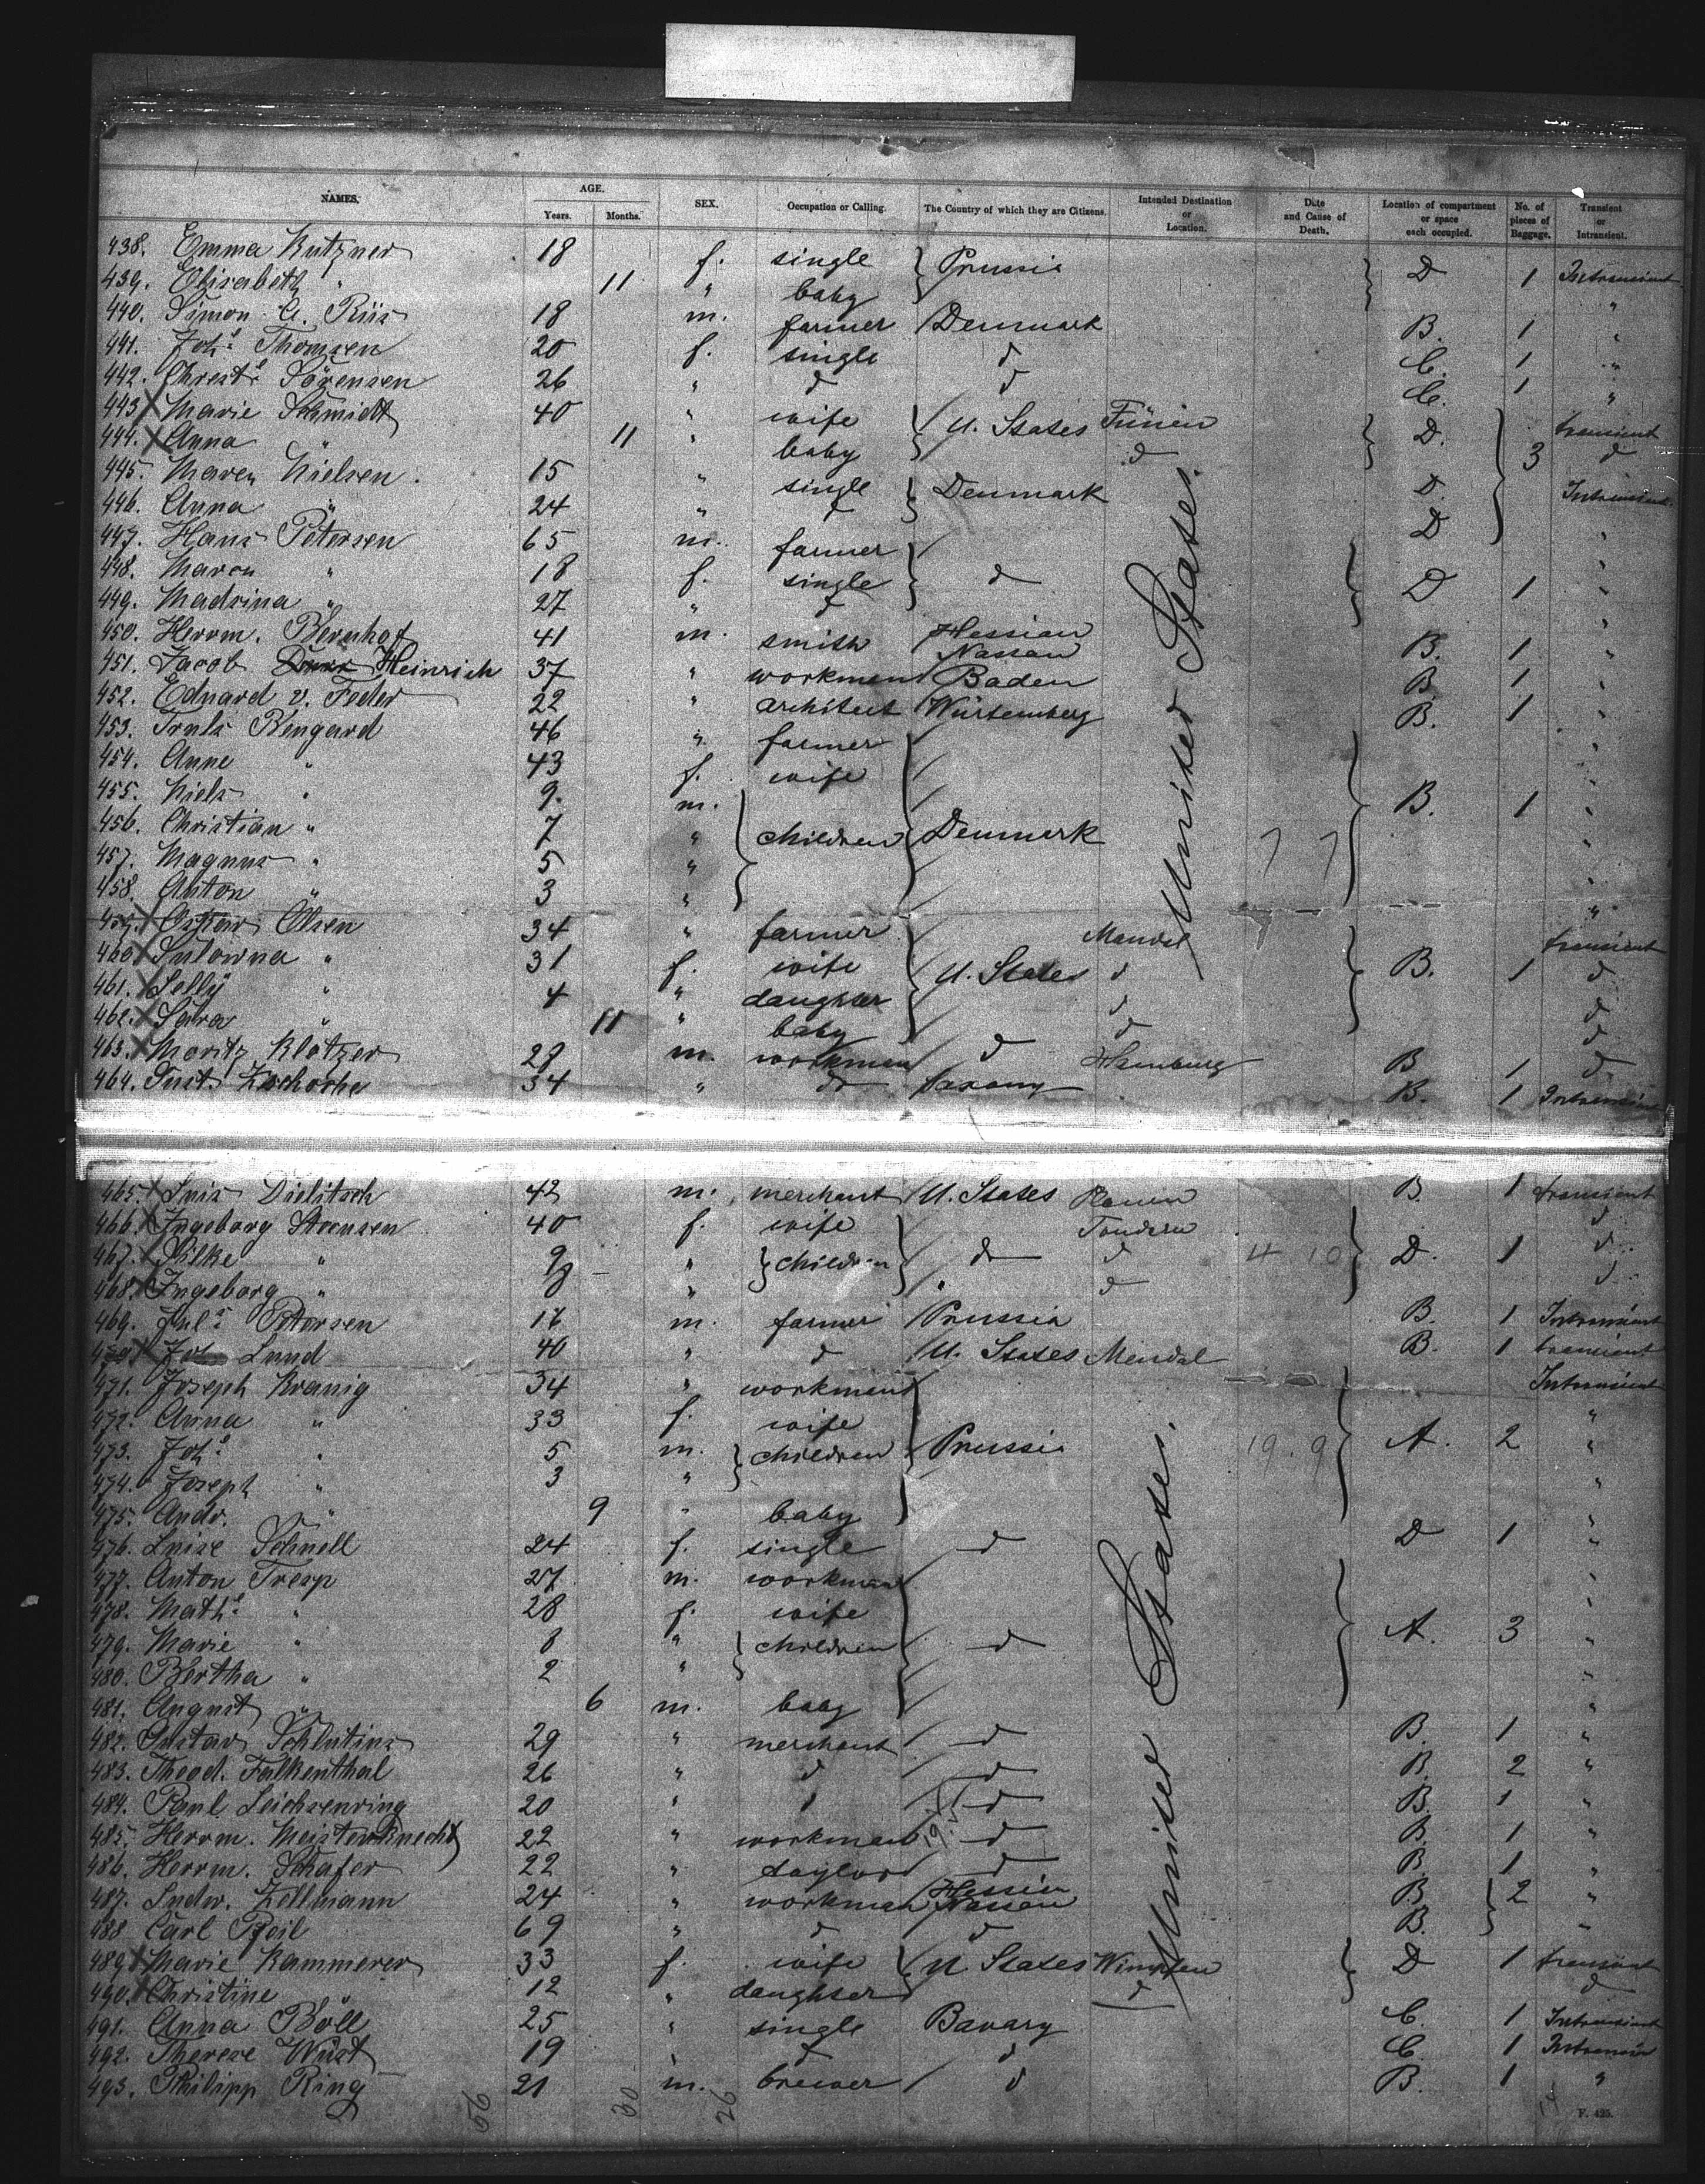 NAMES. AGE. Years. Months. SEX. Occupation or Calling. The Country of which they are Citizens. Intended Destination or Location. Date and Cause of Death. Location of compartment or space each occupied. No. of pieces of Baggage. Transient or Intransient.
438. Emma Kutzner 18 f. single Prussia D 1 Intransient
439. Elisabeth " 11 " baby "
440. Simon C. Riis 18 m. farmer Denmark B. 1 "
441. Joh.ª Thomsen 20 f. single d C. 1 "
442. Christ.e Sörensen 26 " d d C. 1 "
443 X Marie Schmidt 40 " wife U. States Fünen D. 3 transient
444. X Anna " 11 " baby d d
445. Maren Nielsen 15 " single Denmark D. Intransient
446. Anna " 24 " d D
447. Hans Petersen 65 m. farmer d D 1 "
448. Maren " 18 f. single "
449. Madsina " 27 " d "
450. Herrm. Bernhof 41 m. smith Hessian Nassau B. 1 "
451. Jacob Heinrich 37 " workman Baden B 1 "
452. Eduard v. Feder 22 " architect Würtemberg B. 1 "
453. Truls Bengard 46 " farmer Denmark B. 1 "
454. Anne " 43 f. wife "
455. Niels " 9. m. children "
456. Christian " 7 " "
457. Magnus " 5 " "
458. Anton " 3 " "
459. X Olsen 34 " farmer U. States Mandal B. 1 transient
460 X " 31 f. wife d d
461. X Selly " 4 " daughter d d
462. X Sara " 11 " baby d d
463. X Moritz Klötzer 29 m. workman d Hamburg B 1 d
464. Gust. Zschoche 34 " do Saxony B. 1 Intransient
United States.
465. X Luis Dielitsch 42 m. merchant U. States B. 1 transient
466. X Ingeborg Steensen 40 f. wife d Tondern D. 1 d
467. X Silke " 9 " children d 4 10 d
468. X Ingeborg " 8 " " d d
469. Jul.s Petersen 17 m. farmer Prussia B. 1 Intransient
470 X Joh Lund 40 " d U. States Mendal B. 1 transient
471. Joseph Kranig 34 " workman Prussia 19. 9 A. 2 Intransient
472. Anna " 33 f. wife "
473. Joh.s " 5 m. children "
474. Joseph " 3 " "
475. Andr. " 9 " baby "
476. Luise Schnell 24 f. single d D 1 "
477. Anton Tresp 27 m. workman d A. 3 "
478. Math.e " 28 f. wife "
479. Marie " 8 " children "
480. Bertha " 2 " "
481. August " 6 m. baby "
482. Gustav Schlutius 29 " merchant d B. 1 "
483. Theod. Falkenthal 26 " d d B. 2 "
484. Paul Leichsenring 20 " d B. 1 "
485. Herrm. Meisterknecht 22 " workman d B. 1 "
486. Herrm. Schäfer 22 " taylor d B. 1 "
487. Ludw. Zellmann 24 " workman Hessian Nassau B. 2 "
488 Carl Pfeil 69 " d d B. "
489 X Marie Kammerer 33 f. wife U States Wimpfen D 1 transient
490. X Christine " 12 " daughter d d
491. Anna Böll 25 " single Bavary C. 1 Intransient
492. Therese Wüst 19 " d d C. 1 Intransient
493. Philipp Ring 21 m. brewer d B. 1 "
United States.
56 30 26 14
F. 425.